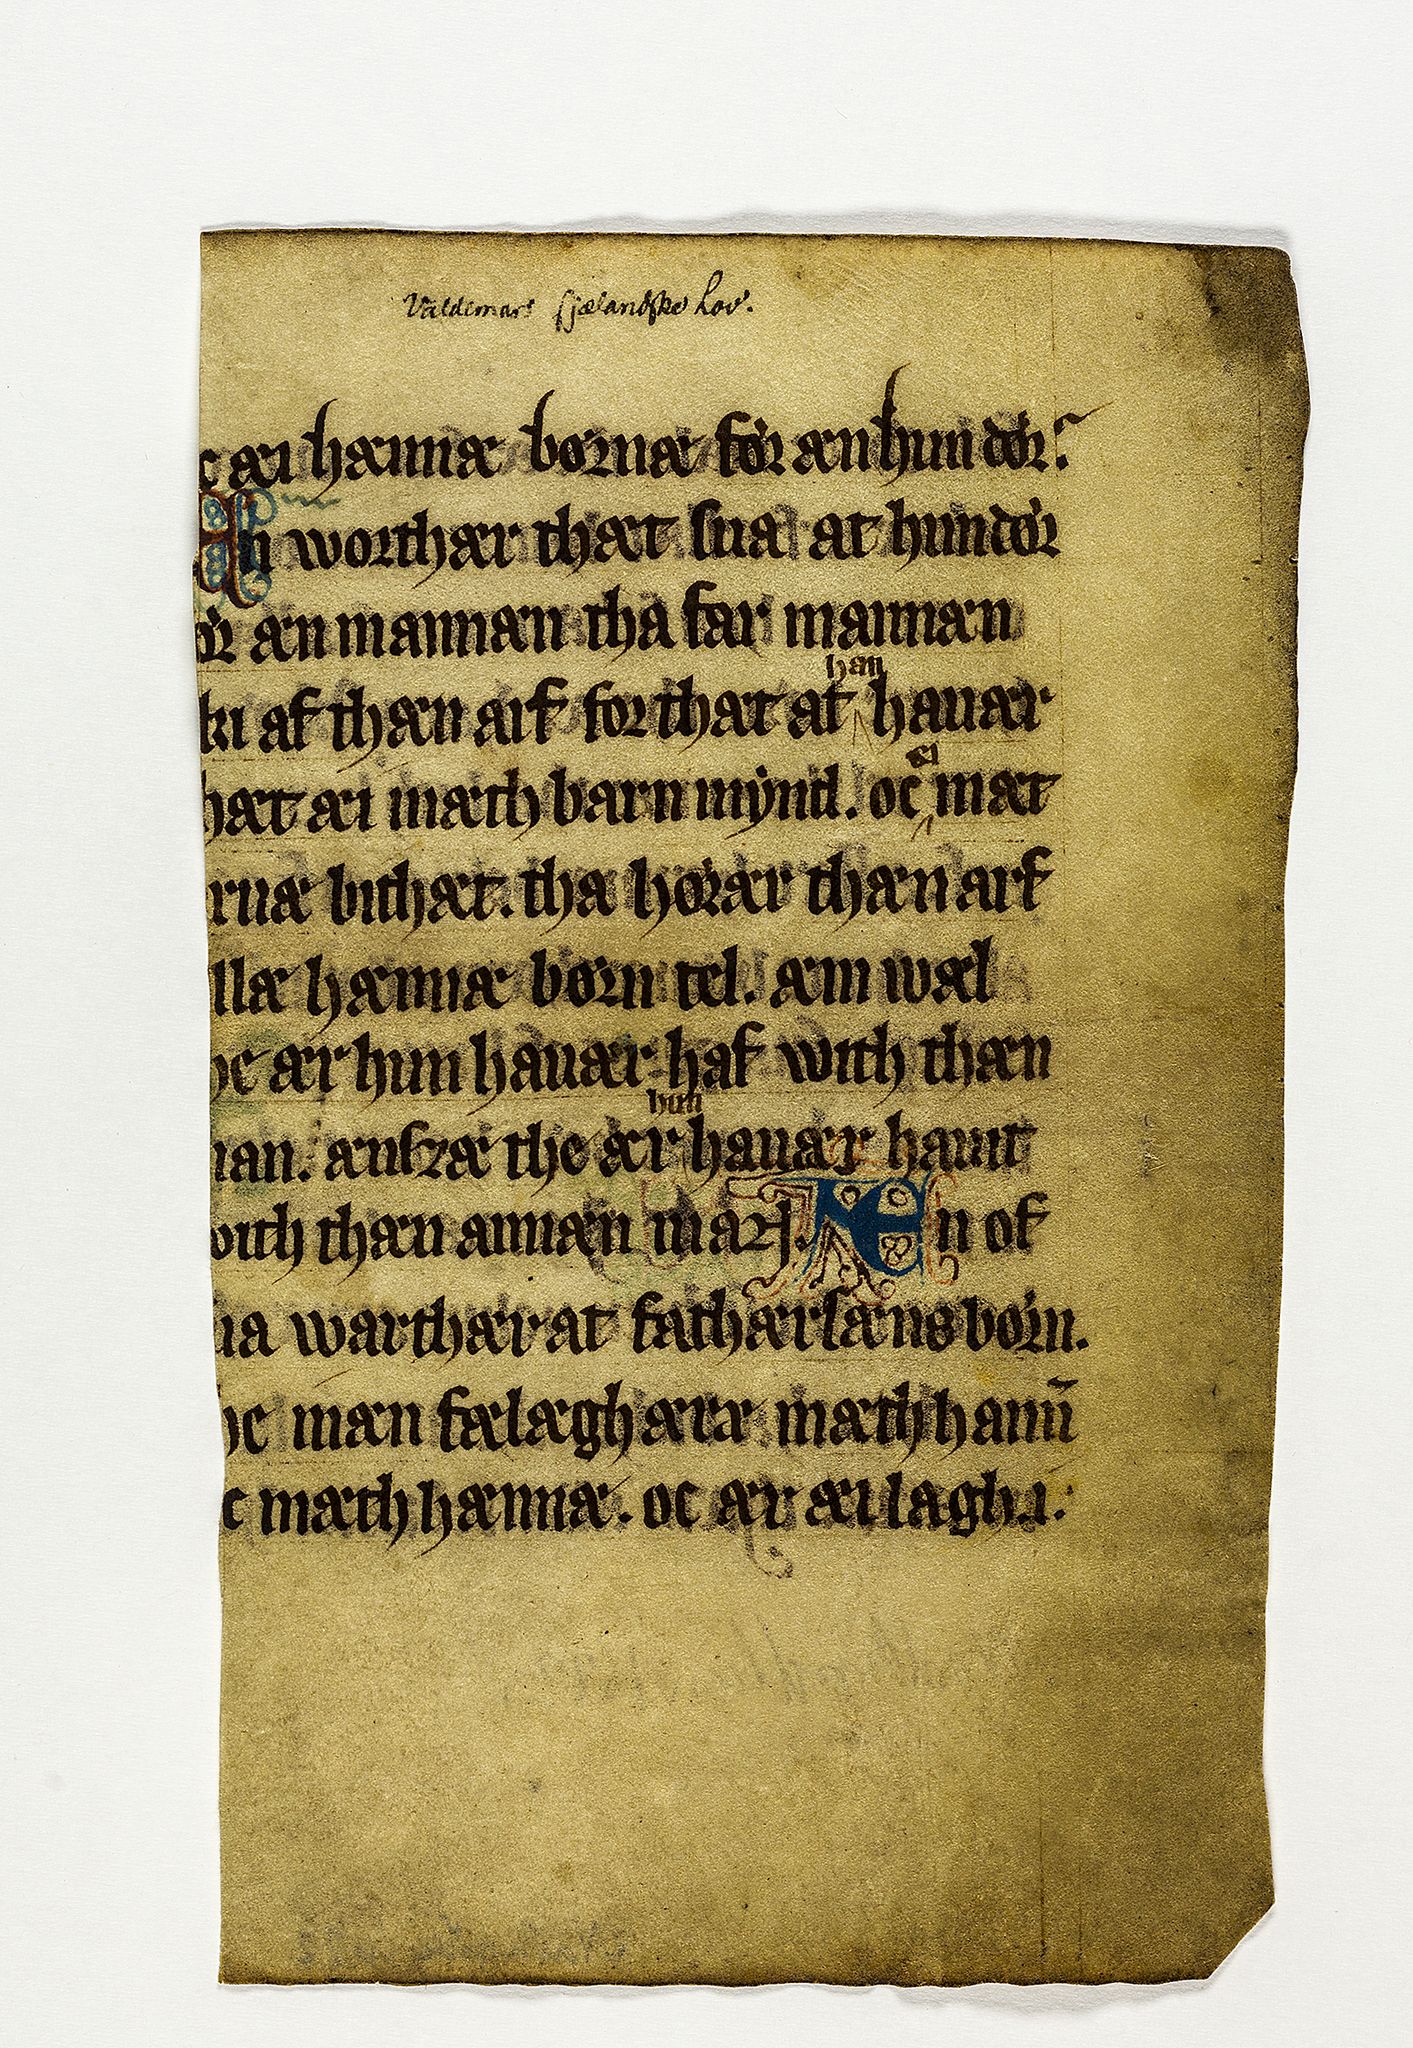 Valdemars sjælandske Lov.
c æi hænnæ børnæ før æn hun dør.
Æn worthær thæt sua at hun dør
ør æn mannæn tha far mannæn
ki af thæn arf for that at han hauær
hæt æi mæth barn mynd. oc æi mæt
rnæ withæt. tha hørær thæn arf
llæ hænnæ børn tel. æm wæl
he ær hun hauær haf with thæn
nan. ænszæ the ær hun hauær hauit
with thæn annæn mar. Æn of
ua warthær at fathærsæns børn.
he mæn fælæghæræ mæth hanū
c mæth hænnæ. oc ær æi lagh.i.